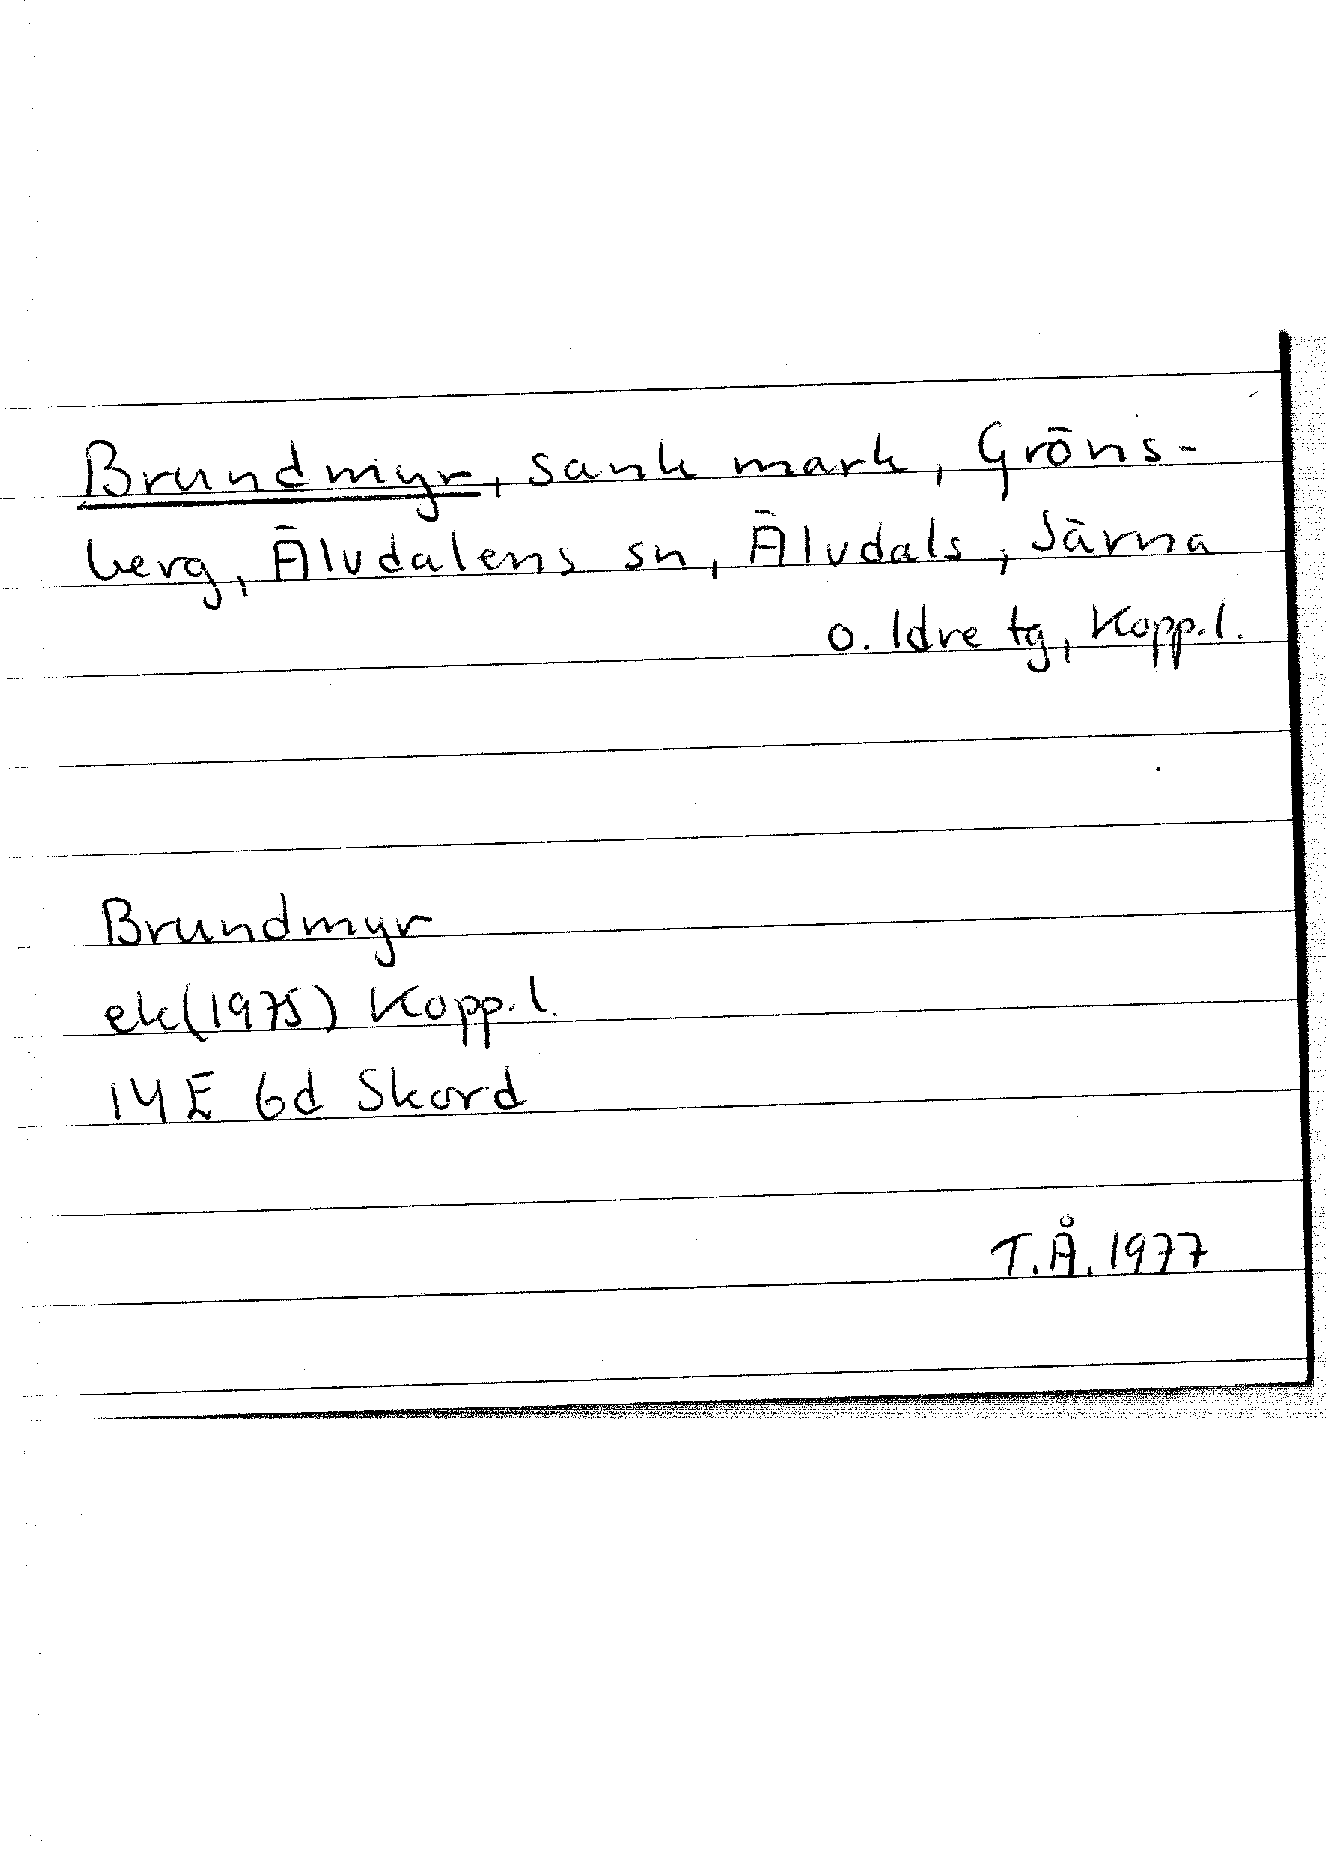 Brundmyr, sank mark, Gröns-
berg, Älvdalens sn, Älvdals, Särna
o. Idre tg, Kopp. l.
Brundmyr
ek (1975) Kopp. l.
14 E 6d Skord
T.Å. 1977